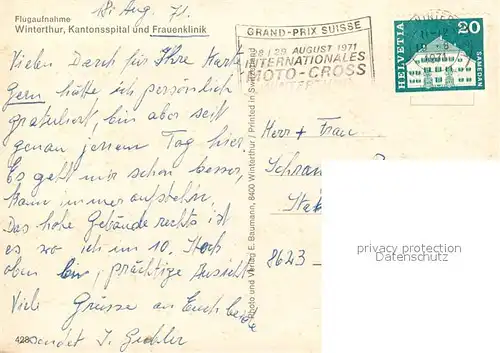 Flugaufnahme
Winterthur, Kantonsspital und Frauenklinik
18. Aug. 71.
Vielen Dank für Ihre Karte
Gern hätte ich persönlich
gratuliert, bin aber seit
genau jenem Tag hier.
Es geht mir schon besser,
kann immer aufstehn.
Das hohe Gebäude rechts ist
es wo ich im 10. Stock
oben bin, prächtige Aussicht
Viele Grüsse an Euch beide
sendet J. Gubler
428
Photo und Verlag E. Baumann, 8400 Winterthur / Printed in Switzerland
GRAND-PRIX SUISSE
29. AUGUST 1971
INTERNATIONALES
MOTO-CROSS
WINTERTHUR
HELVETIA
20
SAMEDAN
Herr + Frau
8623
privacy protection
Datenschutz